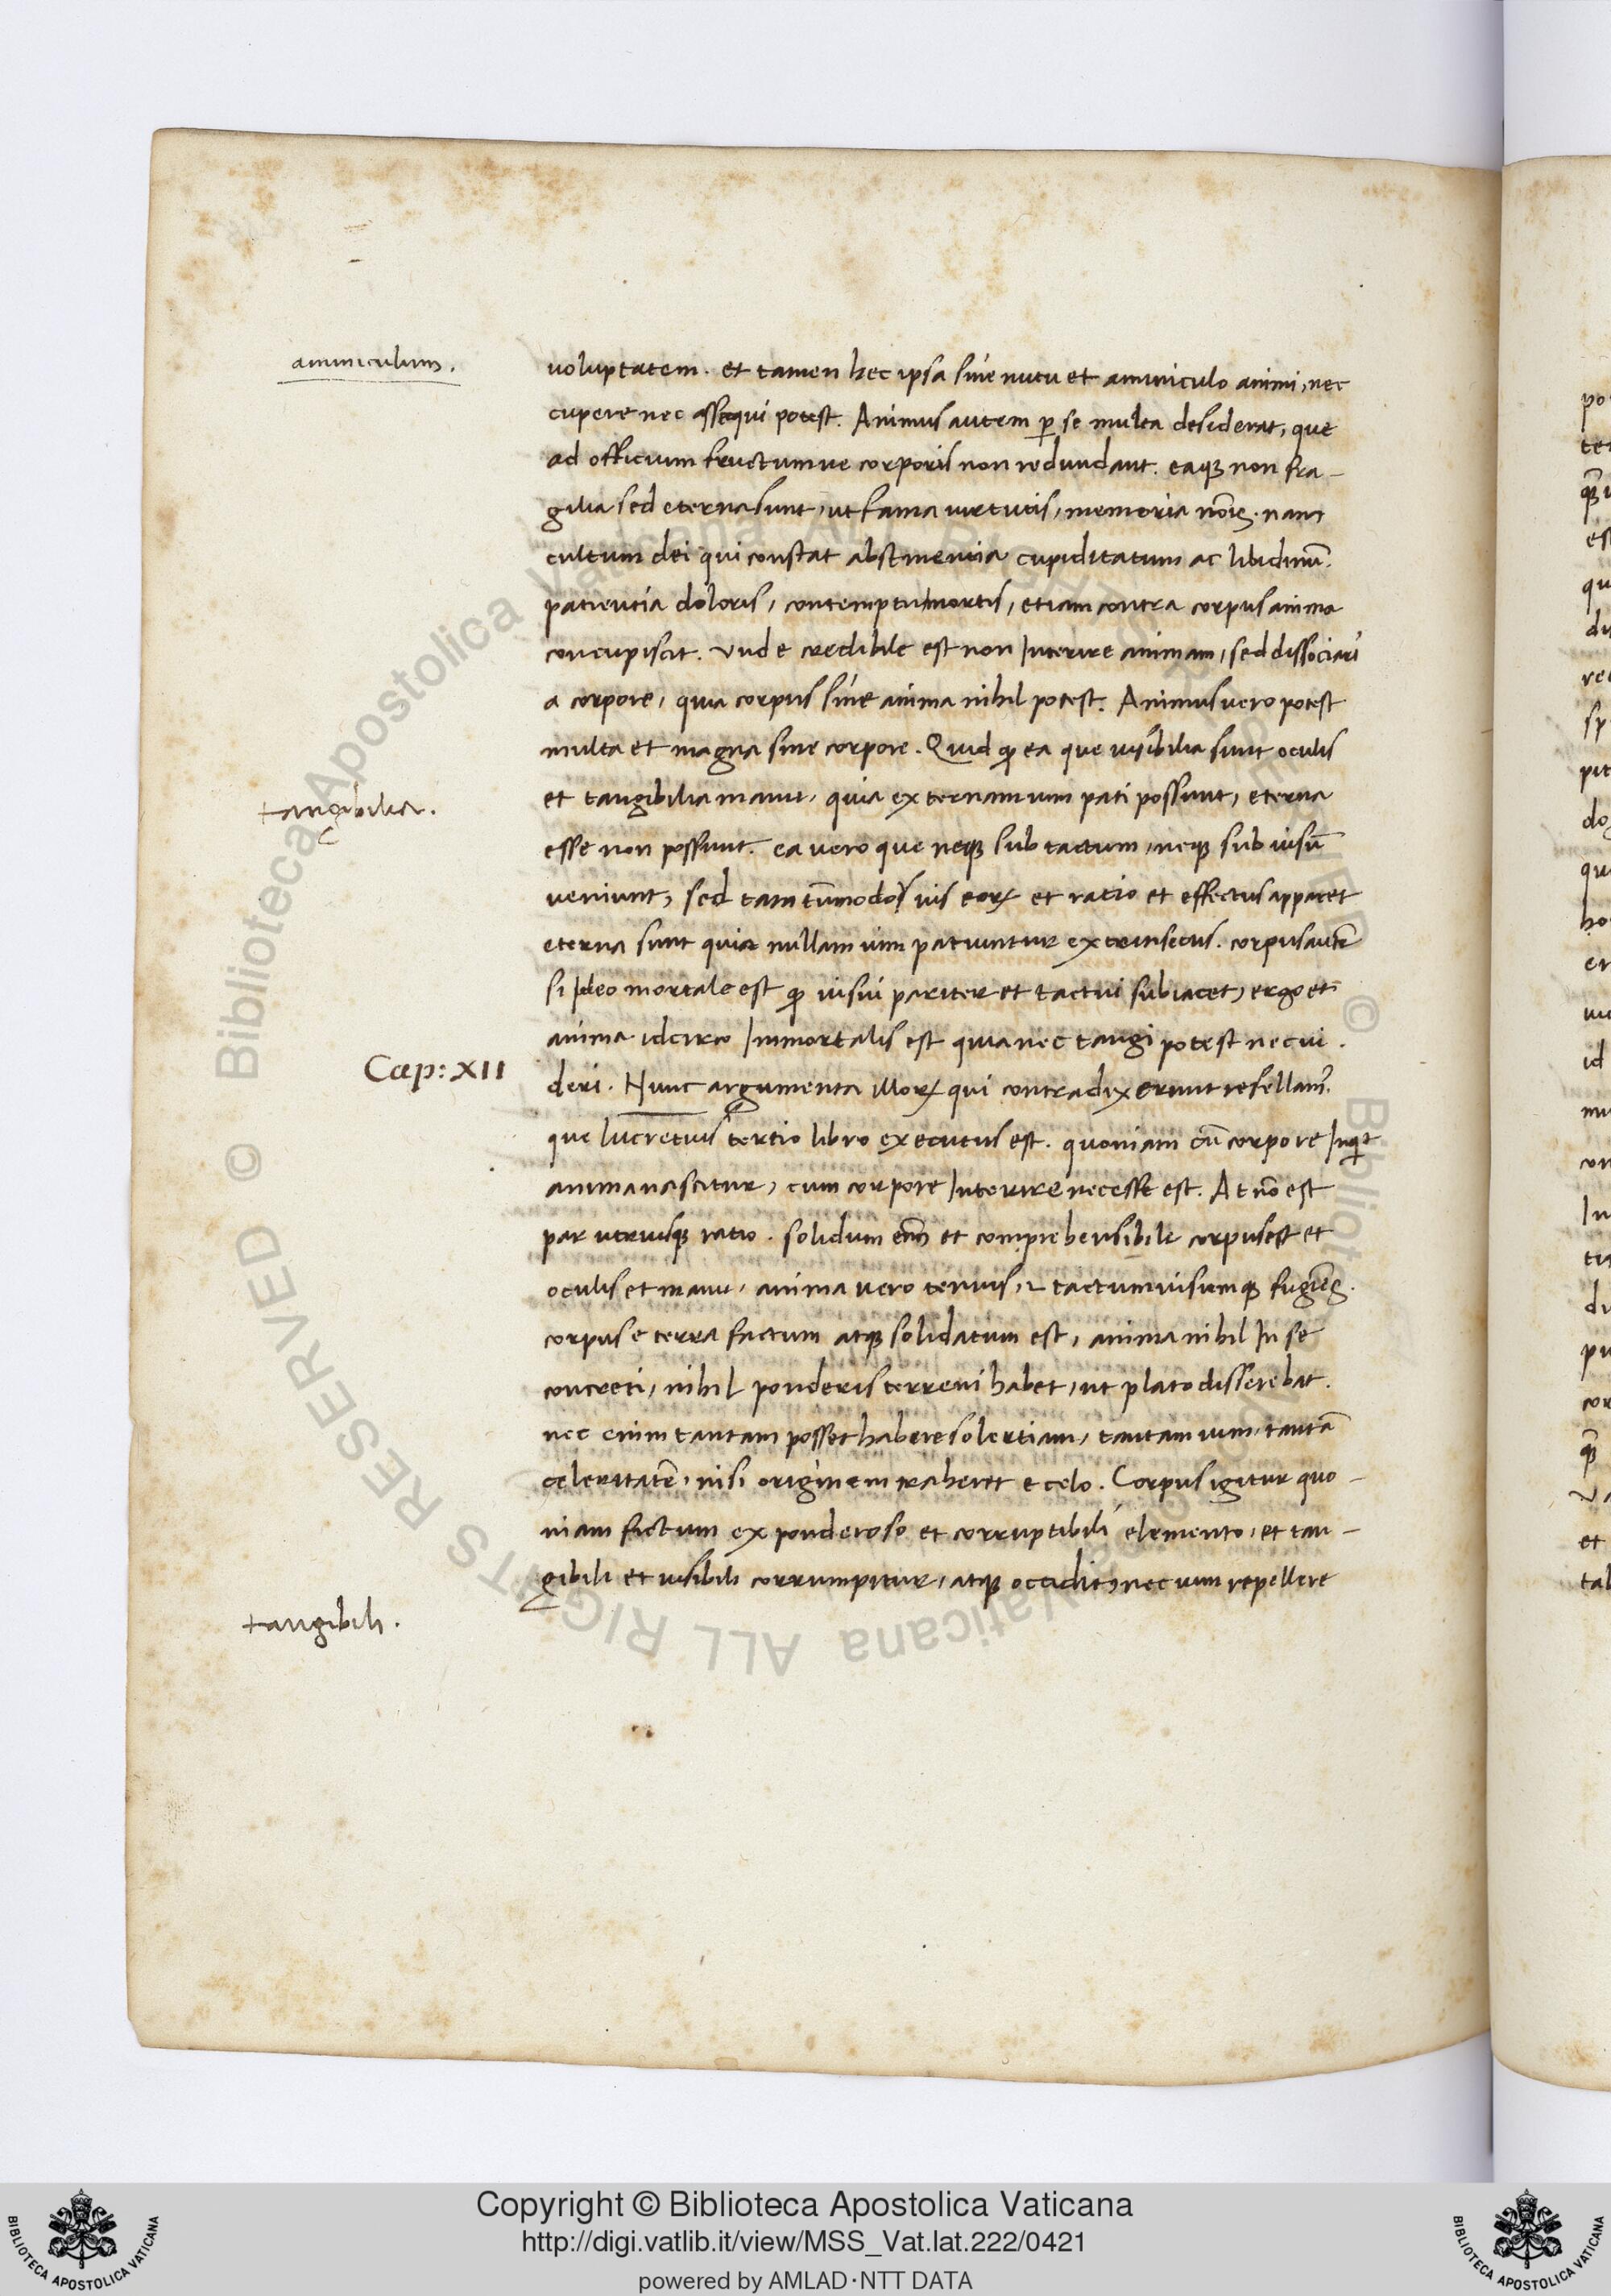 amuniculum.
uoluptatem. et tamen hec ipsa sine nutu et amuniculo animi, nec
cupere nec assequi potest. Animus autem p̱ se multa desiderat, que
ad officium fructumue corporis non redundant. eaqꝫ non fra-
gilia sed eterna sunt, ut fama uirtutis, memoria nōis. nam
cultum dei qui constat abstinentia cupiditatum ac libidinū.
patientia doloris, contemptu mortis, etiam contra corpus anima
concupiscit. vnde credibile est non Interire animam, sed dissociari
a corpore, quia corpus sine anima nihil potest. Animus vero potest
multa et magna sine corpore. Quid ꝙ ea que uisibilia sunt oculis
tangibilia.
et tangibilia manu, quia externam uim pati possunt, eterna
esse non possunt. ea vero que neqꝫ sub tactum, neqꝫ sub uisū
veniunt, sed tantūmodo uis eoꝝ et ratio et effectus apparet
eterna sunt quia nullam uim patiuntur extrinsecus. corpus autē
si Ideo mortale est ꝙ uisui pariter et tactui subiacet, ergo et
anima idcirco Immortalis est quia nec tangi potest nec ui.
Cap: XII
deri. Nunc argumenta illoꝝ qui contradixerunt refellam9.
que lucretius tertio libro executus est. quoniam cū corpore Inqt
anima nascitur, cum corpore Interire necesse est. At nō est
par utriusqꝫ ratio. solidum em̄ et comprehensibile corpus est et
oculis et manu, anima vero tenuis, ⁊ tactum uisumqꝫ fugiēs.
corpus e terra factum atqꝫ solidatum est, anima nihil In se
concreti, nihil ponderis terreni habet, ut plato disserebat.
nec enim tantam posset habere solertiam, tantam uim, tantā
celeritatē, nisi originem traheret e celo. Corpus igitur quo-
niam fictum ex ponderoso et corruptibili elemento, et tan-
gibili et uisibili corrumpitur, atqꝫ occidit, nec uim repellere
tangibili.
po
ter
es
qu
di
rec
sp
pit
do
qu
ho
er
uu
id
mu
con
In
tia
du
pu
cor
va
et
tal
© Biblioteca Apostolica Vaticana ALL RIGHTS RESERVED
Copyright © Biblioteca Apostolica Vaticana
http://digi.vatlib.it/view/MSS_Vat.lat.222/0421
powered by AMLAD·NTT DATA
BIBLIOTECA APOSTOLICA VATICANA
BIBLIOTECA APOSTOLICA VATICANA